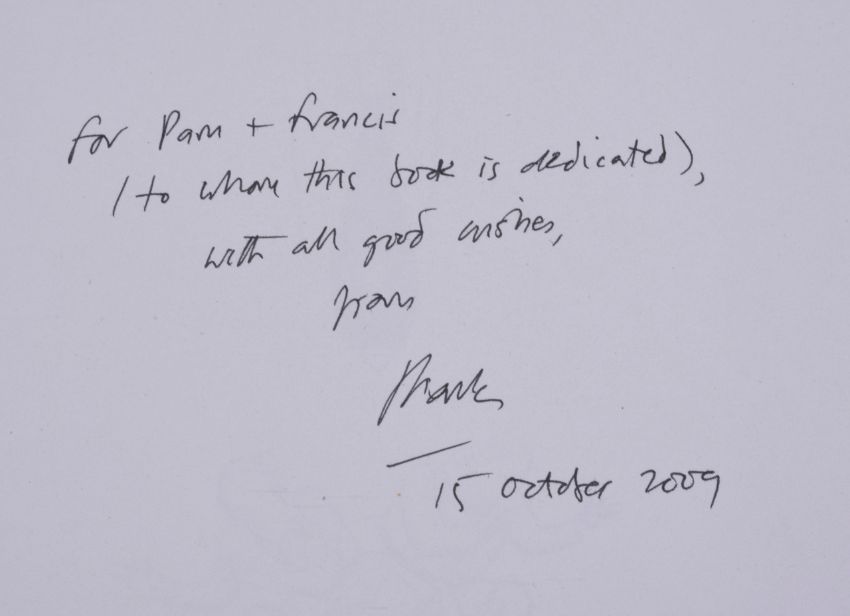 for Pam + Francis
(to whom this book is dedicated),
with all good wishes,
from
15 October 2009